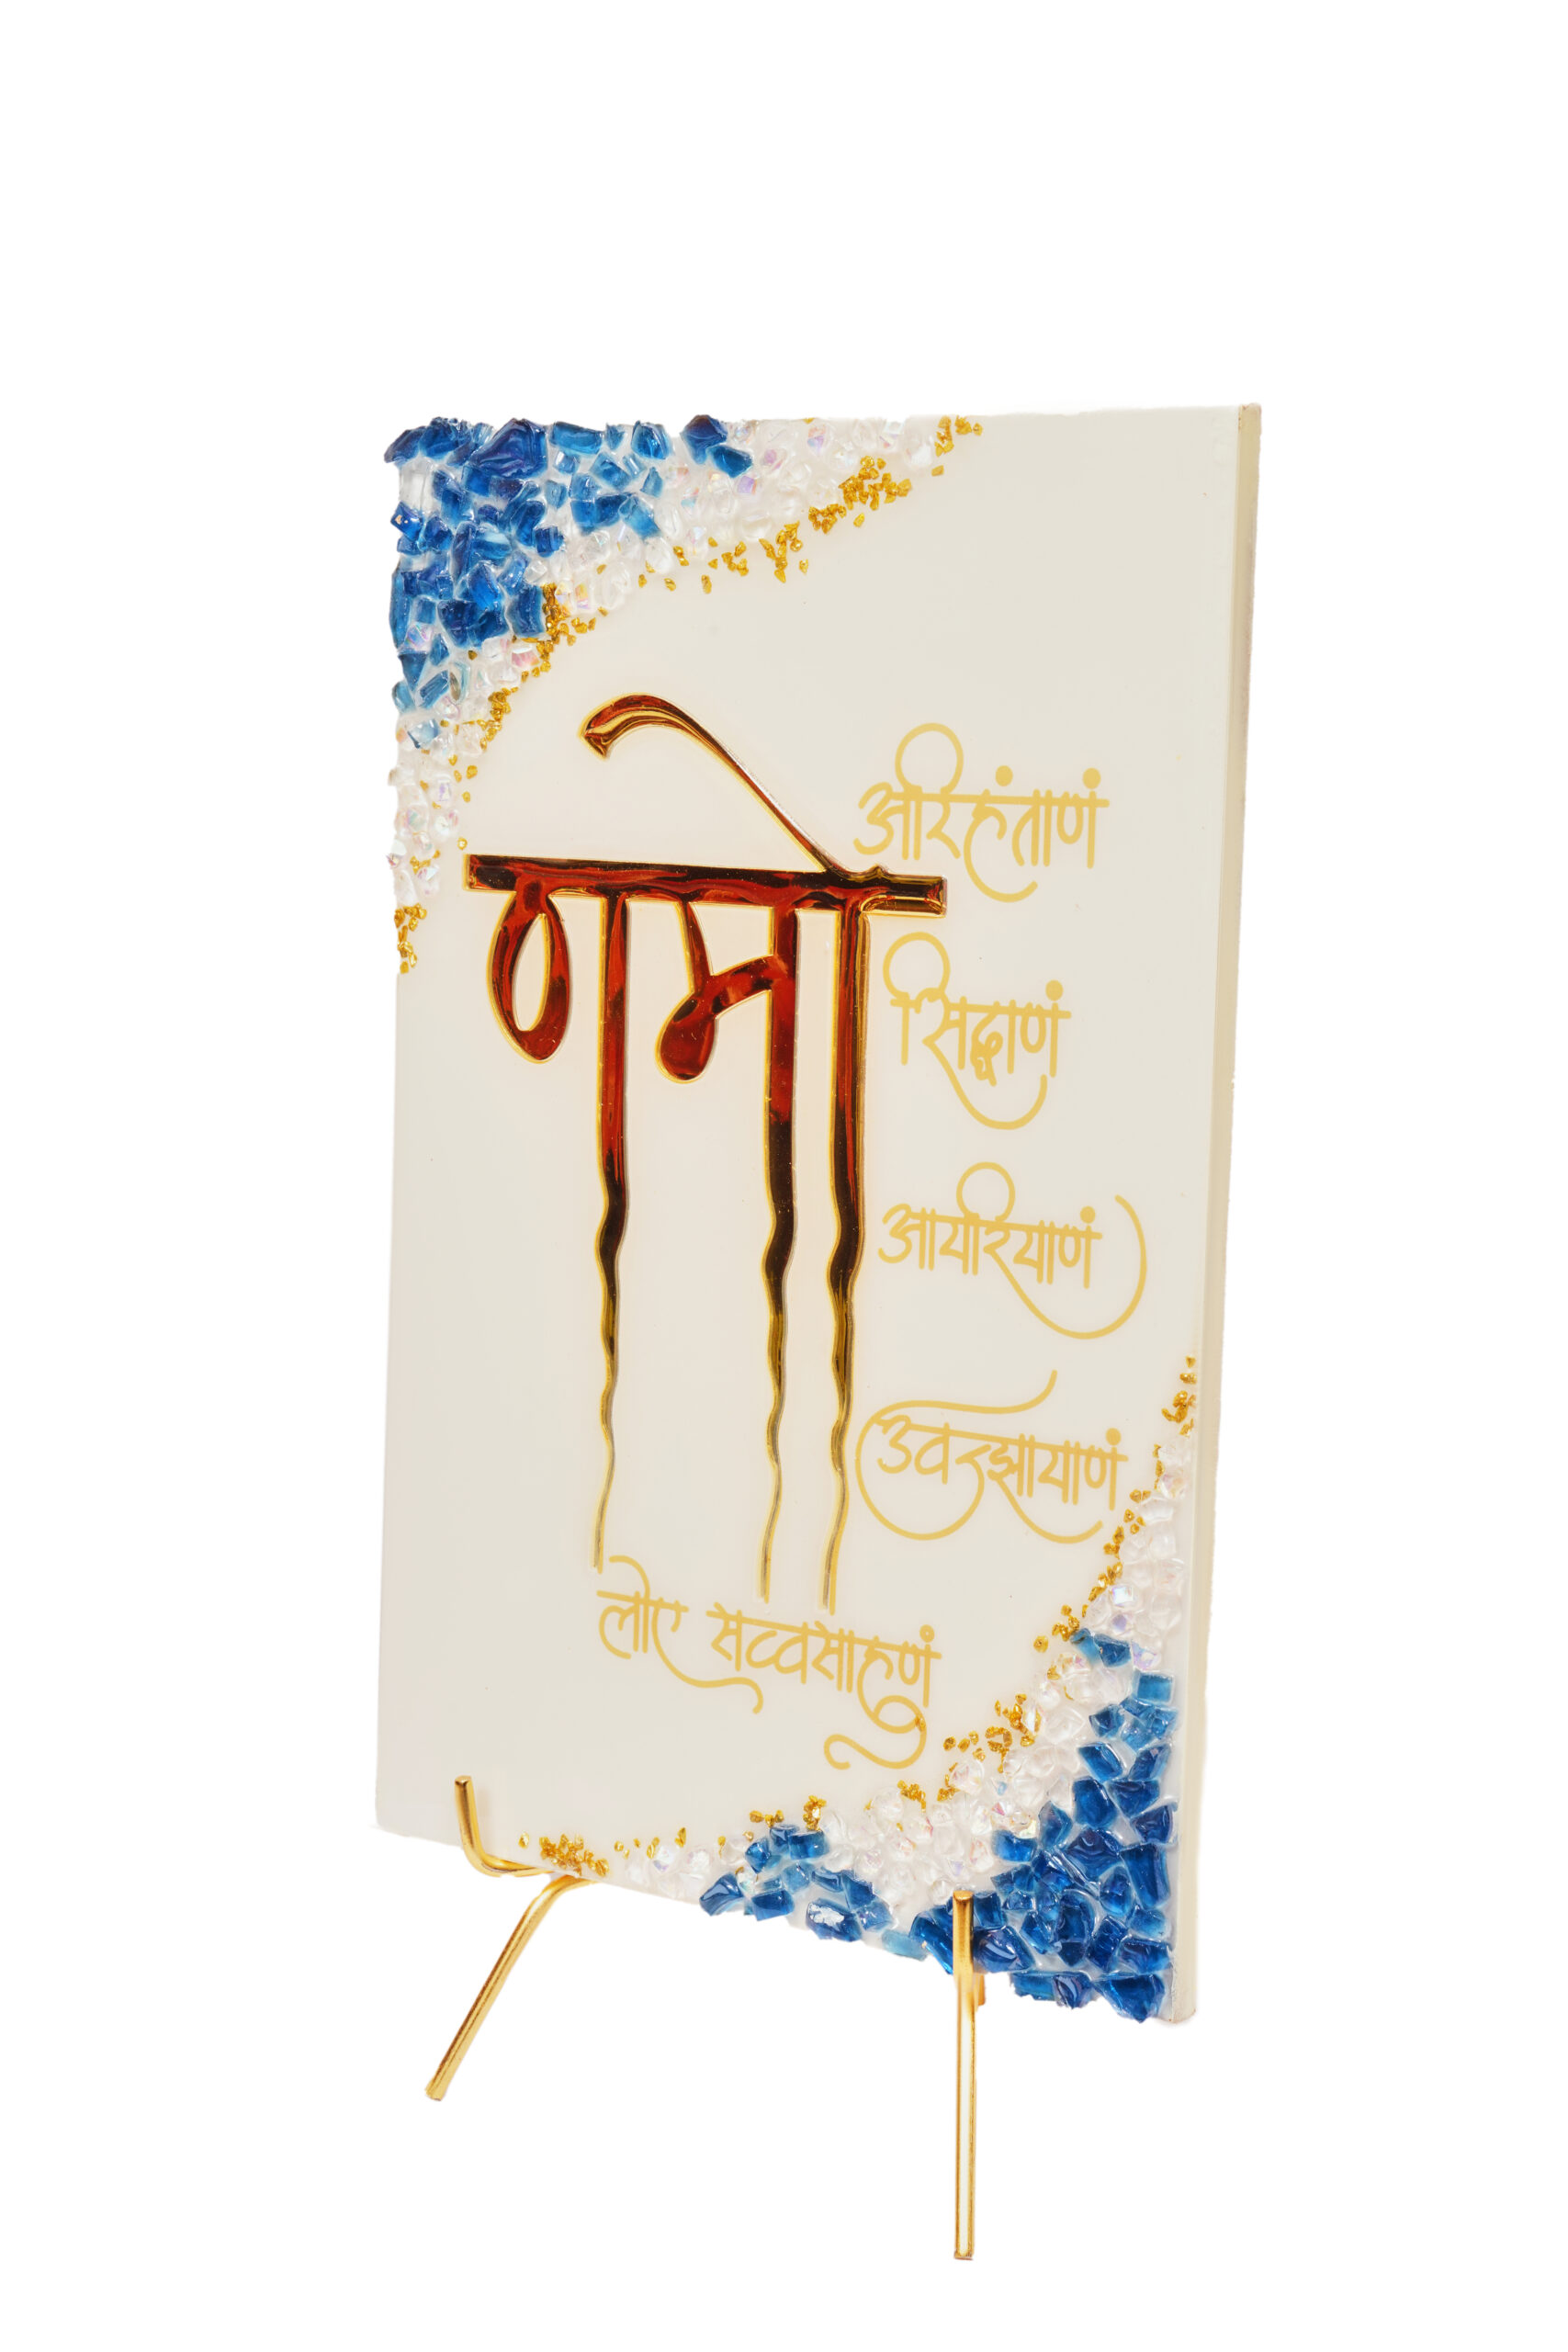 णमो
अरिहंताणं
सिद्धाणं
आयरियाणं
उवज्झायाणं
लोए सव्वसाहुणं